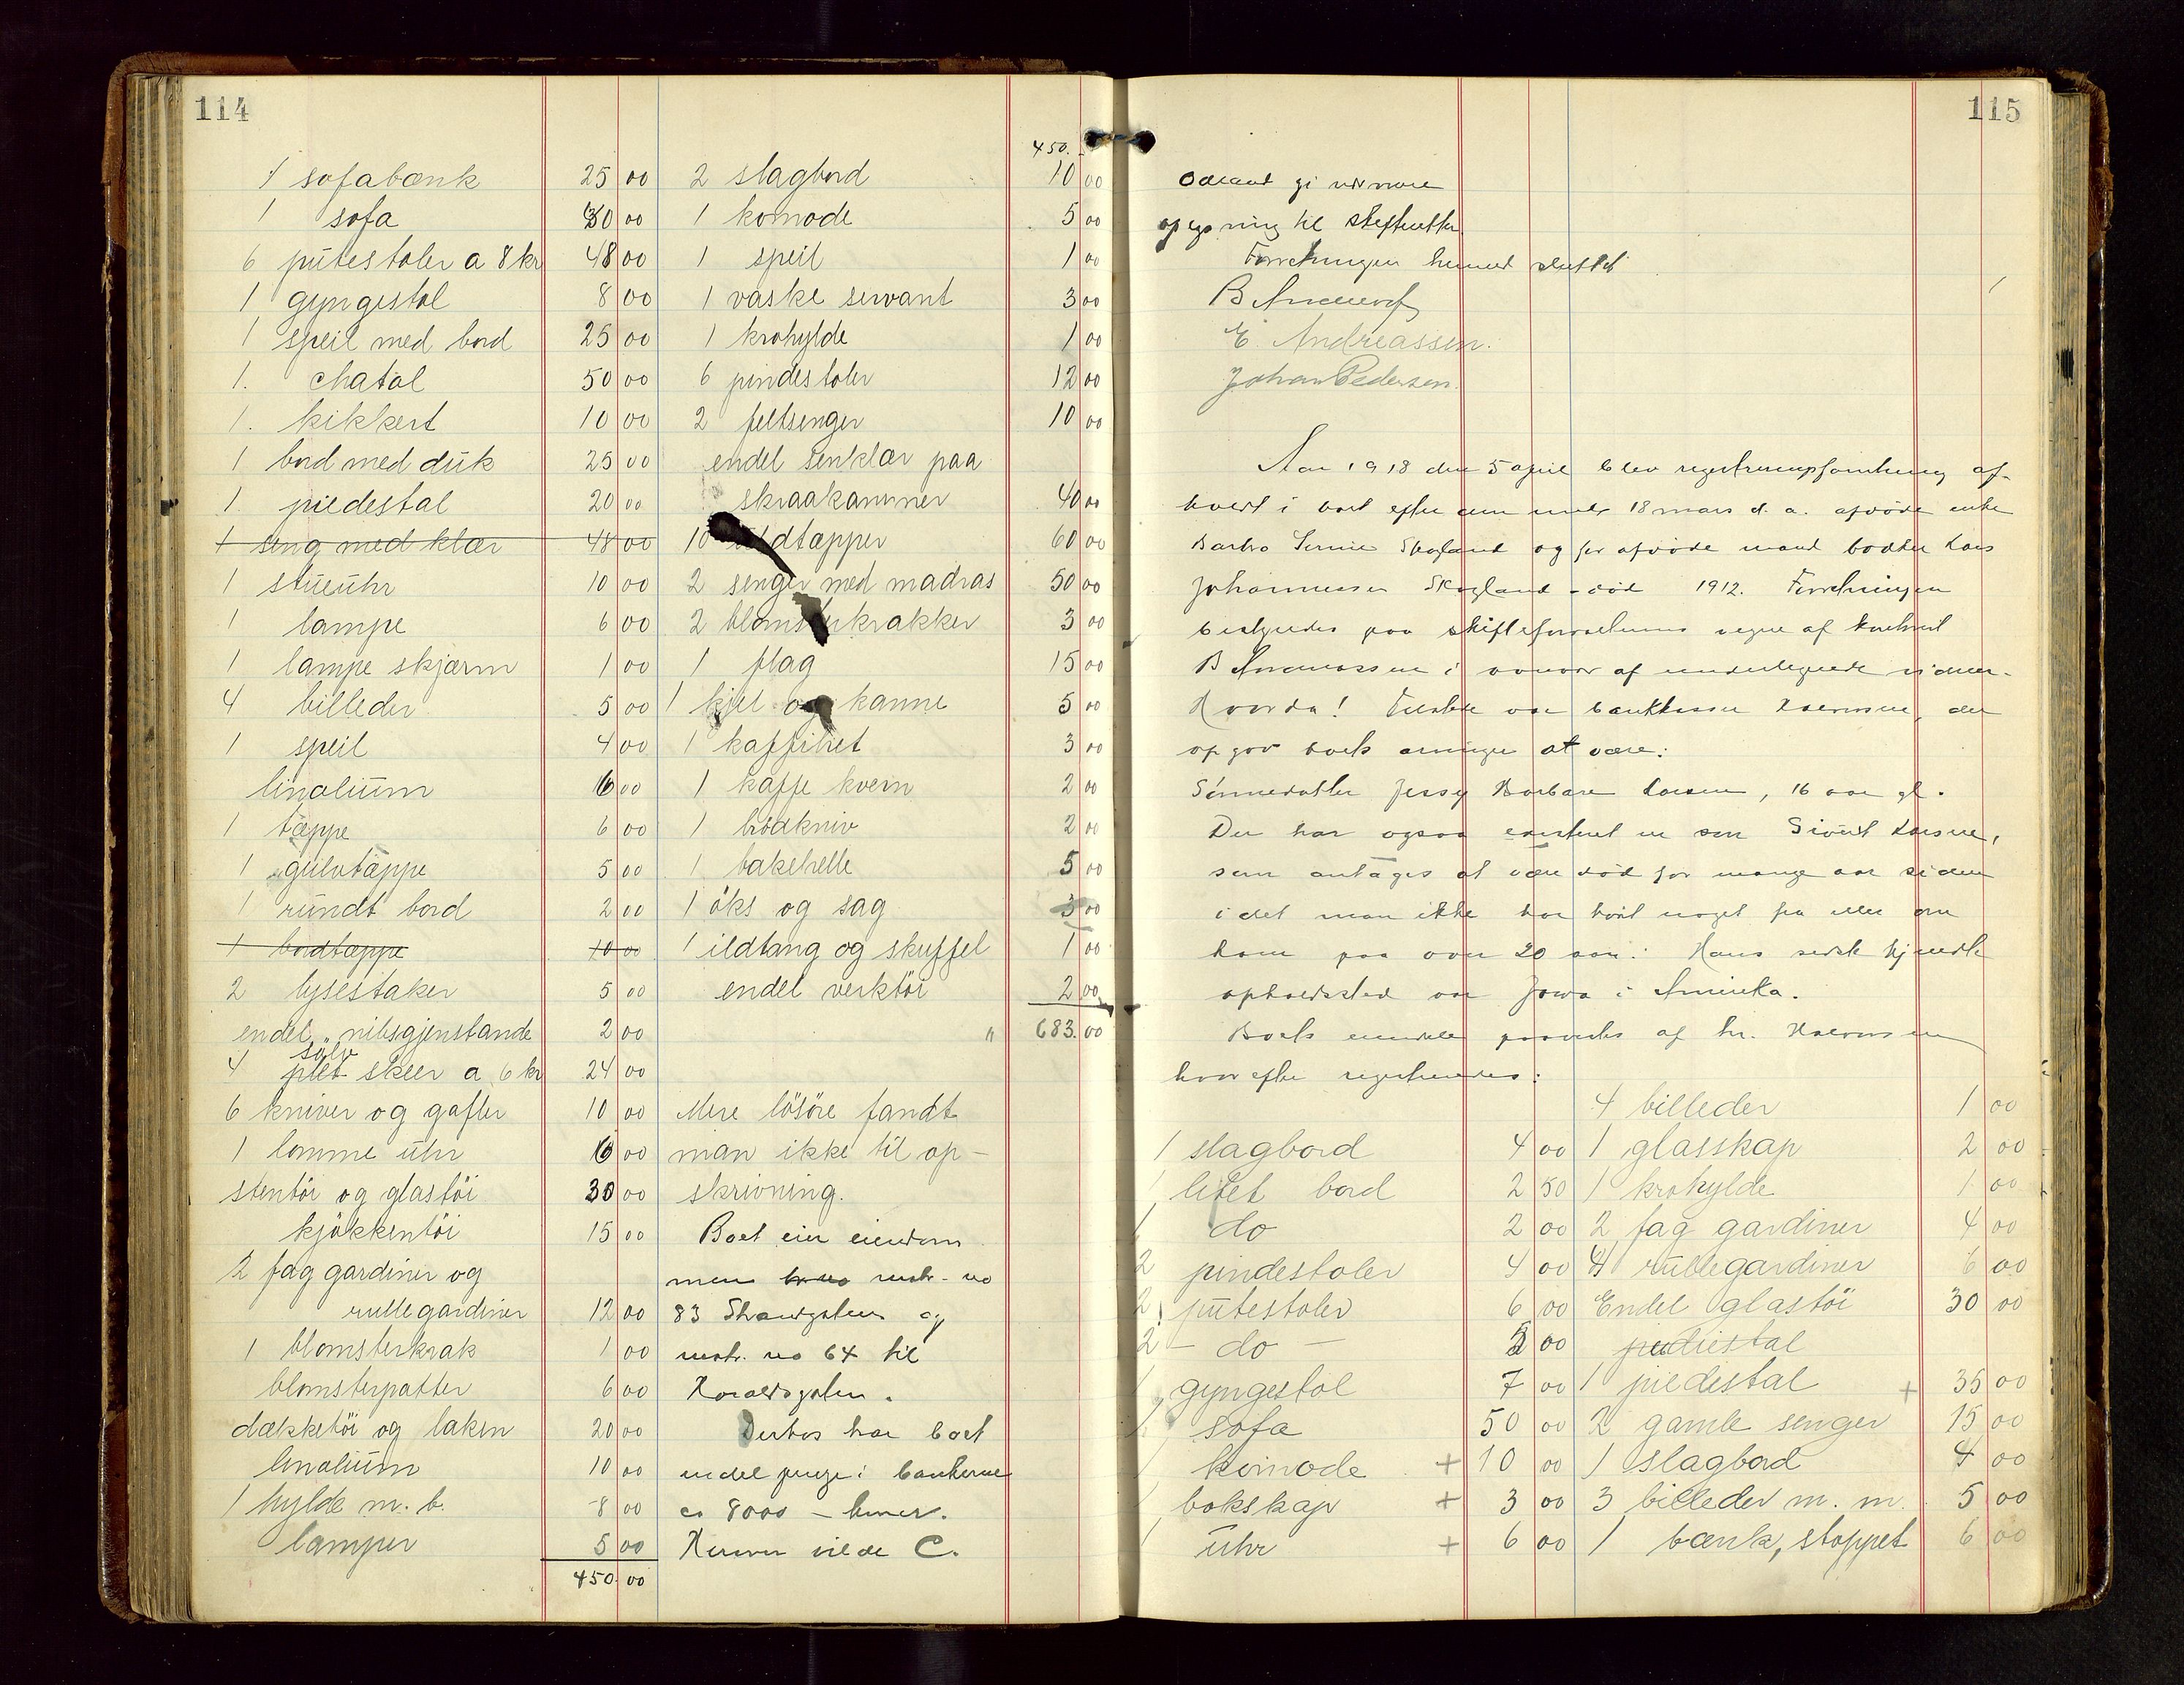 114
1 sofabænk 25 00
1 sofa 30 00
6 pütestoler a 8 kr 48 00
1 gyngestol 8 00
1 speil med bord 25 00
1. chatol 50 00
1. kikkert 10 00
1 bord med dük 25 00
1. piedestal 20 00
1 seng med klær 48 00
1 stüeühr 10 00
1 lampe 6 00
1 lampe skjærm 1 00
4 billeder 5 00
1 speil 4 00
linoliüm 6 00
1 tæppe 6 00
1 gülvtæppe 5 00
1 ründt bord 2 00
1 bordtæppe 10 00
2 lysestaker 5 00
endel nibsgjenstande 2 00
sölv
4 plet skeer a 6 kr 24 00
6 kniver og gafler 10 00
1 lomme ühr 6 00
stentöi og glastöi 30 00
kjökkentöi 15 00
2 fag gardiner og
rullegardiner 12 00
1 blomsterkrak 1 00
blomsterpotter 6 00
dækketöi og laken 20 00
linoliüm 10 00
1 hylde m. b. 8 00
lamper 5 00
450 00
450.
2 slagbord 10 00
1 komode 5 00
1 speil 1 00
1 vaske servant 3 00
1 krohylde 1 00
6 pindestoler 12 00
2 feltsenger 10 00
endel senklær paa
skraakammer 40 00
10 uldtæpper 60 00
2 senger med madras 50 00
2 blomsterkrakker 3 00
1 flag 15 00
1 kjel og kanne 5 00
1 kaffihet 3 00
1 kaffe kvern 2 00
1 brödkniv 2 00
1 bakehelle 5 00
1 öks og sag 3 00
1 ildtang og skuffel 1 00
endel verktöi 2 00
" 683.00
Mere lösöre fandt
man ikke til op-
skrivning.
Boet eier eiendom
men matr. no
83 Strandgaten og
matr. no 64 til
Haraldsgaten.
Desuten har boet
endel penge i bankerne
ca 8000 – kroner.
vilde
115
gi nærmere
opgjøring til skifteretten
Forretningen hermed sluttet
B Andreassen
E. Andreassen.
Johan Pedersen.
Aar 1918 den 5 april blev registreringsforretning af-
holdt i boet efter den under 18 mars d. a. afdöde enke
Skogland og før afdöde mand bödker Lars
Johannessen Skogland – död 1912. Forretningen
bestyredes paa skifteforvalterens vegne af
B Andreassen i nærvær af undertegnede vidner.
Tilstede var bankkasser, der
opgav boets arvinger at være:
Sönnedatter Jessy Barbara Larsen, 16 aar gl.
Der har ogsaa existeret en sön Sivert Larsen,
som antages at være död for mange aar siden
idet man ikke har hört noget fra eller om
ham paa over 20 aar. Hans sidste kjendte
opholdssted var Jowa i Amerika.
Boets eiendele paavistes af hr.
hvorefter registreredes:
1 slagbord 4 00
1 litet bord 2 50
1 do 2 00
2 pindestoler 4 00
2 pütestoler 6 00
2 – do – 3 00
1 gyngestol 7 00
1 sofa 50 00
1 komode + 10 00
1 bokskap + 3 00
1 ühr + 6 00
4 billeder 1 00
1 glasskap 2 00
1 krohylde 1 00
2 fag gardiner 4 00
4 rüllegardiner 6 00
Endel glastöi 30 00
pidiestal
1 piedestal + 35 00
2 gamle senger 15 00
1 slagbord 4 00
3 billeder m. m. 5 00
1 bænk, stoppet 6 00